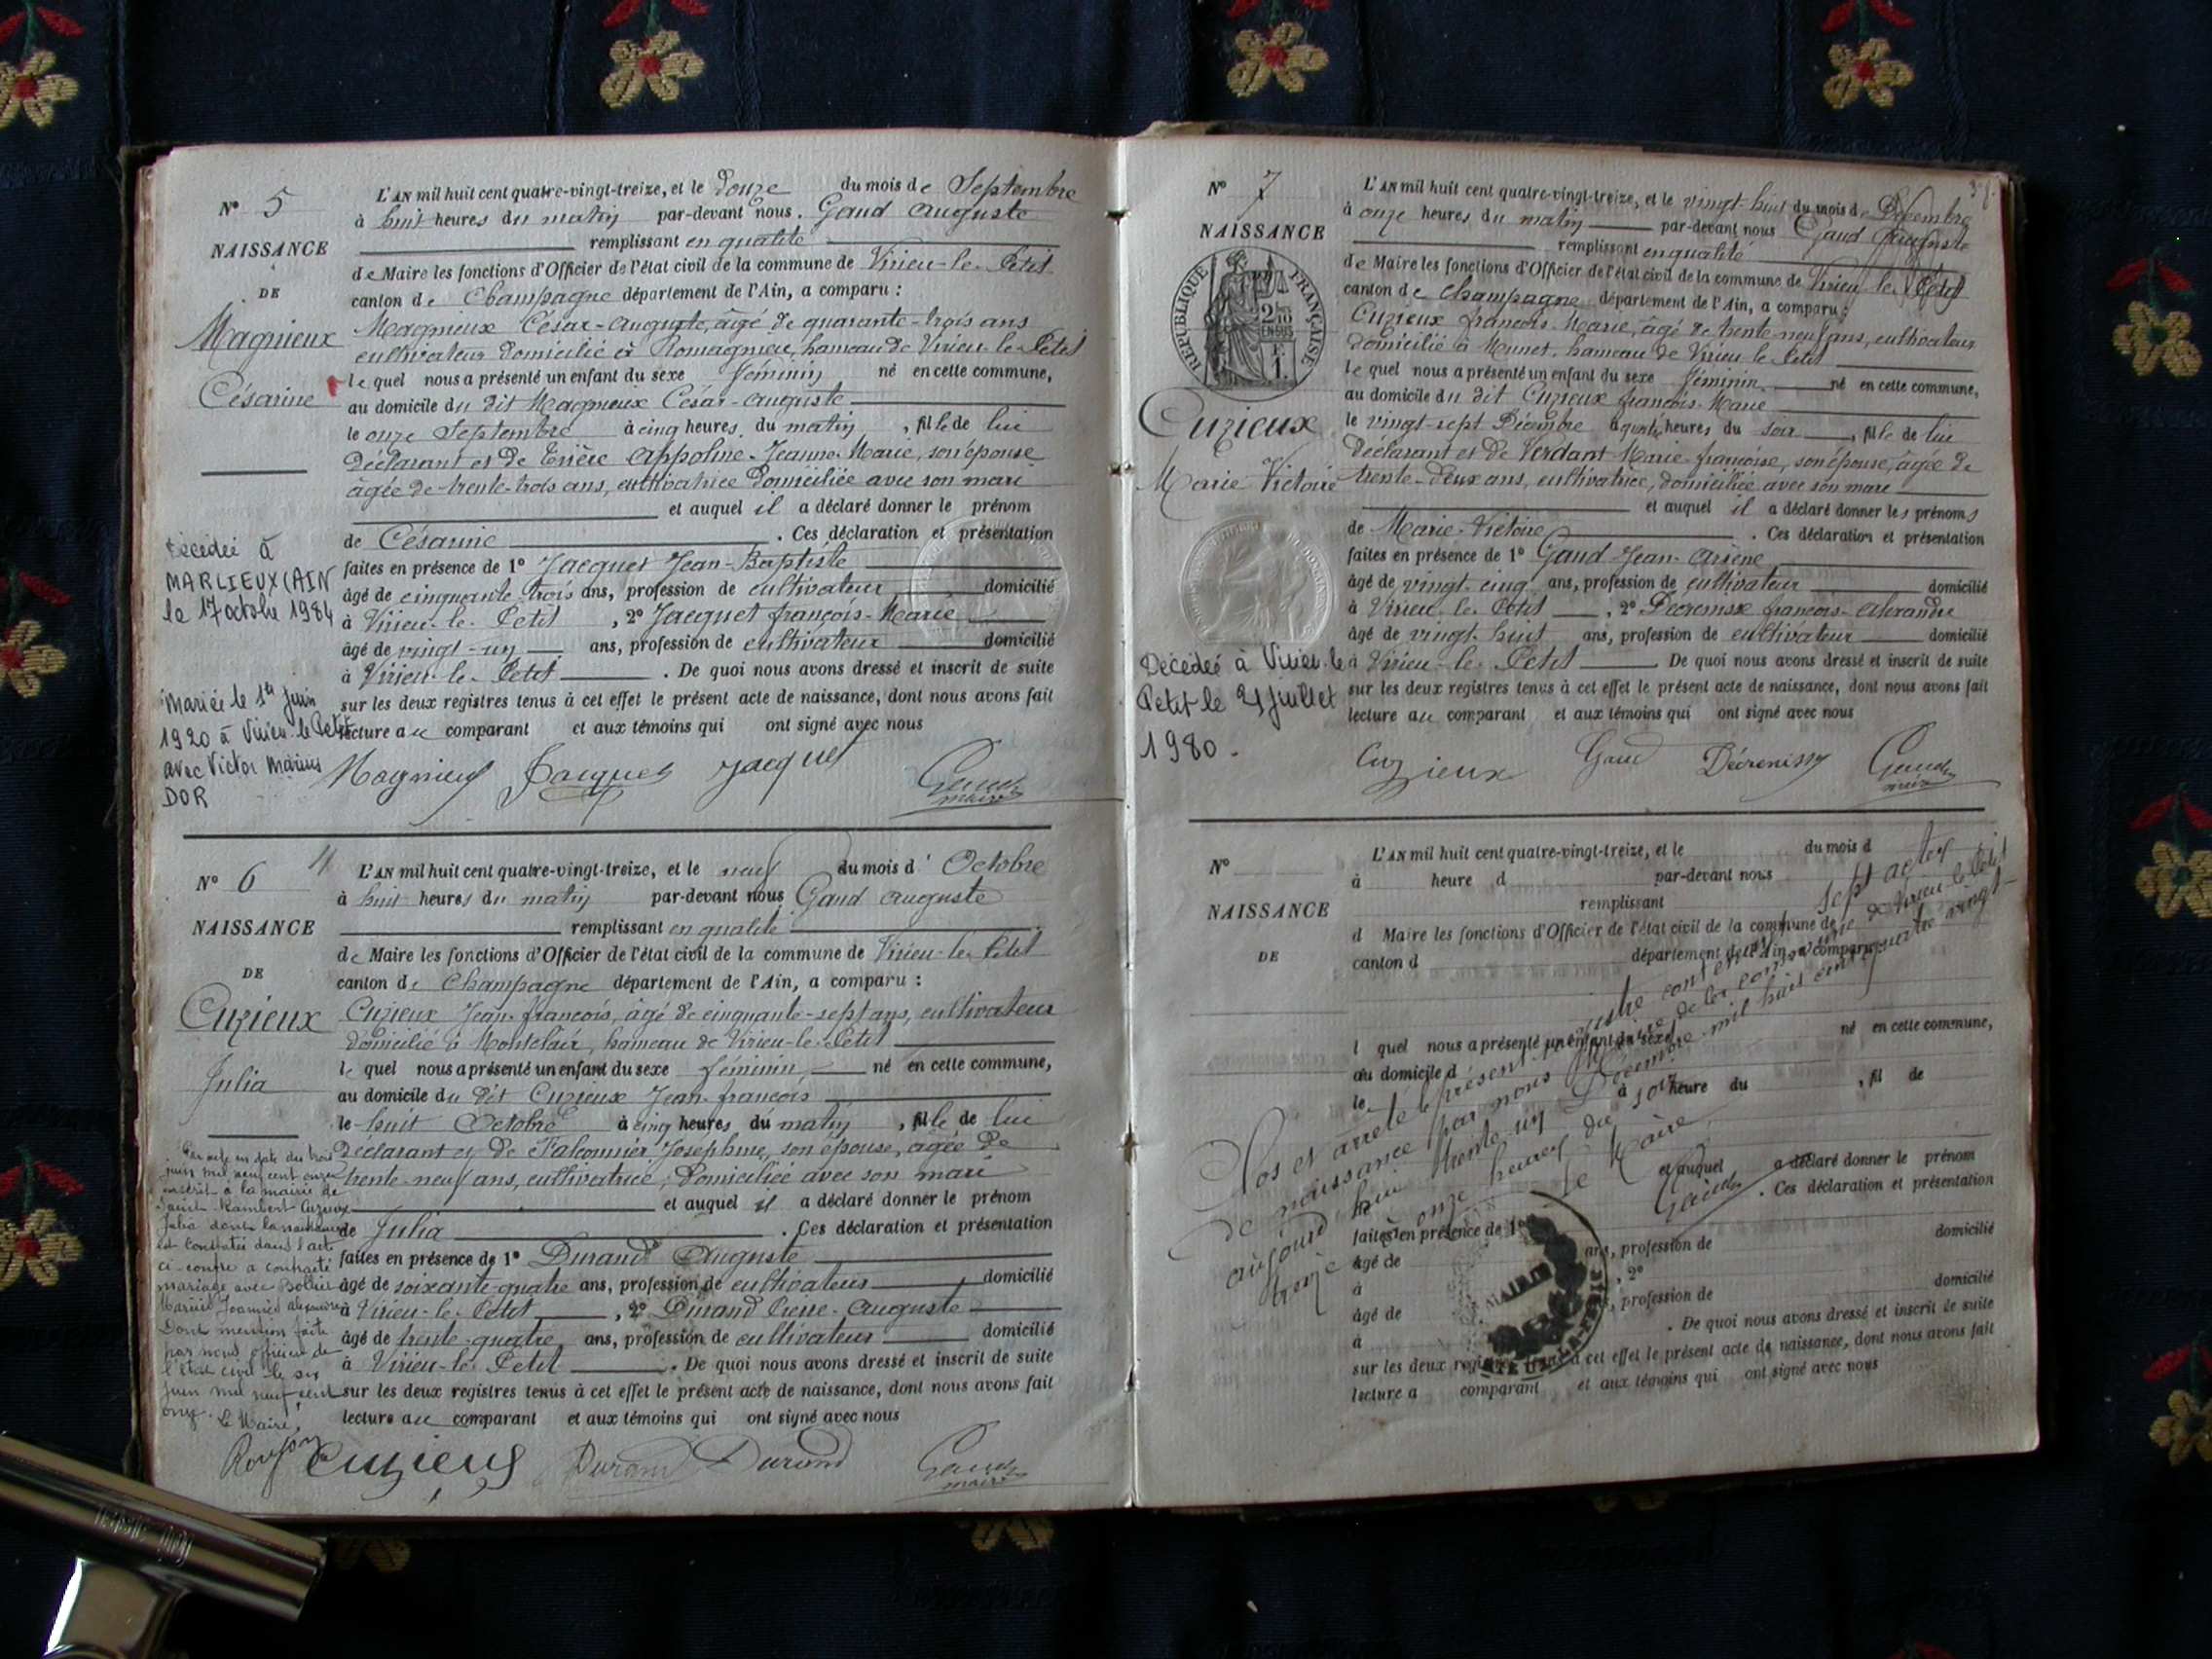 N° 5
NAISSANCE
DE
Magnieux
Césarine
L'AN mil huit cent quatre-vingt-treize, et le douze du mois de Septembre
à huit heures du matin par-devant nous. Gaud Auguste
remplissant en qualité
de Maire les fonctions d'Officier de l'état civil de la commune de Virieu-le-Petit
canton de Champagne département de l'Ain, a comparu :
Magnieux César-Auguste, âgé de quarante-trois ans
cultivateur domicilié à Romagnieu, hameau de Virieu-le-Petit
lequel nous a présenté un enfant du sexe féminin né en cette commune,
au domicile du dit Magnieux César-Auguste
le onze Septembre à cinq heures du matin, fille de lui
déclarant et de Appoline-Jeanne-Marie, son épouse
âgée de trente-trois ans, cultivatrice domiciliée avec son mari
et auquel il a déclaré donner le prénom
de Césarine. Ces déclaration et présentation
faites en présence de 1° Jacquet Jean-Baptiste
âgé de cinquante-trois ans, profession de cultivateur domicilié
à Virieu-le-Petit, 2° Jacquet françois-Marie
âgé de vingt-un ans, profession de cultivateur domicilié
à Virieu-le-Petit. De quoi nous avons dressé et inscrit de suite
sur les deux registres tenus à cet effet le présent acte de naissance, dont nous avons fait
lecture au comparant et aux témoins qui ont signé avec nous
Magnieux Jacquet Jacquet Gaud
maire
Décédée à
MARLIEUX (AIN
le 17 octobre 1984
Mariée le 1er Juin
1920 à Virieu-le-Petit
avec Victor Marius
DOR
N° 6
NAISSANCE
DE
Cuzieux
Julia
L'AN mil huit cent quatre-vingt-treize, et le neuf du mois d'Octobre
à huit heures du matin par-devant nous Gaud Auguste
remplissant en qualité
de Maire les fonctions d'Officier de l'état civil de la commune de Virieu-le-Petit
canton de Champagne département de l'Ain, a comparu :
Cuzieux Jean-françois, âgé de cinquante-sept ans, cultivateur
domicilié à Montclair, hameau de Virieu-le-Petit
lequel nous a présenté un enfant du sexe féminin, né en cette commune,
au domicile du dit Cuzieux Jean-françois
le huit Octobre à cinq heures du matin, fille de lui
déclarant et de Falconnier Joséphine, son épouse, âgée de
trente-neuf ans, cultivatrice, domiciliée avec son mari
et auquel il a déclaré donner le prénom
de Julia. Ces déclaration et présentation
faites en présence de 1° Durand Auguste
âgé de soixante-quatre ans, profession de cultivateur domicilié
à Virieu-le-Petit, 2° Durand Pierre-Auguste
âgé de trente-quatre ans, profession de cultivateur domicilié
à Virieu-le-Petit. De quoi nous avons dressé et inscrit de suite
sur les deux registres tenus à cet effet le présent acte de naissance, dont nous avons fait
lecture au comparant et aux témoins qui ont signé avec nous
Cuzieux Durand Durand Gaud
maire
Par acte en date du trois
juin mil neuf cent onze
inscrit à la mairie de
Saint-Rambert Cuzieux
Julia dont la naissance
est constatée dans l'acte
ci-contre a contracté
mariage avec Bollier
Marius Joannès Alexandre
Dont mention faite
par nous officier de
l'état civil le six
juin mil neuf cent
onze.
Le Maire,
N° 7
NAISSANCE
RÉPUBLIQUE FRANÇAISE
2/10
EN SUS
F
1.
Cuzieux
Marie Victoire
L'AN mil huit cent quatre-vingt-treize, et le vingt-huit du mois de Décembre
à onze heures du matin par-devant nous Gaud Auguste
remplissant en qualité
de Maire les fonctions d'Officier de l'état civil de la commune de Virieu-le-Petit
canton de Champagne département de l'Ain, a comparu :
Cuzieux françois-Marie, âgé de trente-neuf ans, cultivateur
domicilié à Munet, hameau de Virieu-le-Petit
lequel nous a présenté un enfant du sexe féminin né en cette commune,
au domicile du dit Cuzieux françois-Marie
le vingt-sept Décembre à quatre heures du soir, fille de lui
déclarant et de Verdant Marie-françoise, son épouse, âgée de
trente-deux ans, cultivatrice, domiciliée avec son mari
et auquel il a déclaré donner les prénoms
de Marie-Victoire. Ces déclaration et présentation
faites en présence de 1° Gaud Jean-Arsène
âgé de vingt-cinq ans, profession de cultivateur domicilié
à Virieu-le-Petit, 2° françois-Alexandre
âgé de vingt-huit ans, profession de cultivateur domicilié
à Virieu-le-Petit. De quoi nous avons dressé et inscrit de suite
sur les deux registres tenus à cet effet le présent acte de naissance, dont nous avons fait
lecture au comparant et aux témoins qui ont signé avec nous
Cuzieux Gaud Gaud
maire
Décédée à Virieu-le
Petit le 21 Juillet
1980.
N°
NAISSANCE
DE
L'AN mil huit cent quatre-vingt-treize, et le du mois d
à heure d par-devant nous
remplissant
d Maire les fonctions d'Officier de l'état civil de la commune de
canton d département de l'Ain, a comparu :
l quel nous a présenté un enfant du sexe né en cette commune,
au domicile d
le à heure du, fil de
et auquel a déclaré donner le prénom
. Ces déclaration et présentation
faites en présence de 1°
âgé de ans, profession de domicilié
à, 2°
âgé de ans, profession de domicilié
à. De quoi nous avons dressé et inscrit de suite
sur les deux registres tenus à cet effet le présent acte de naissance, dont nous avons fait
lecture a comparant et aux témoins qui ont signé avec nous
Clos et arrêté le présent registre contenant sept actes
de naissance par nous Maire de la commune de Virieu-le-Petit
aujourd'hui trente un Décembre mil huit cent quatre vingt-
treize onze heures du soir
Le Maire,
Gaud
MAIRIE